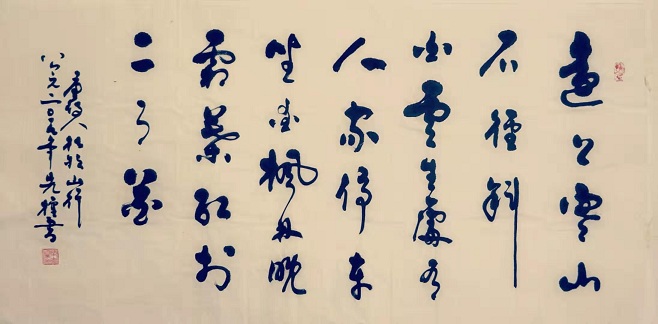 遠上寒山
石徑斜
白雲生處有
人家停車
坐愛楓林晚
霜葉紅於
二月花
唐詩人杜牧山行
公元二〇 年先 書